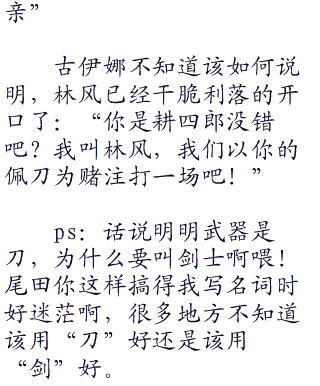 亲”
古伊娜不知道该如何说
明，林风已经干脆利落的开
口了：“你是耕四郎没错
吧？我叫林风，我们以你的
佩刀为赌注打一场吧！”
ps：话说明明武器是
刀，为什么要叫剑士啊喂！
尾田你这样搞得我写名词时
好迷茫啊，很多地方不知道
该用“刀”好还是该用
“剑”好。